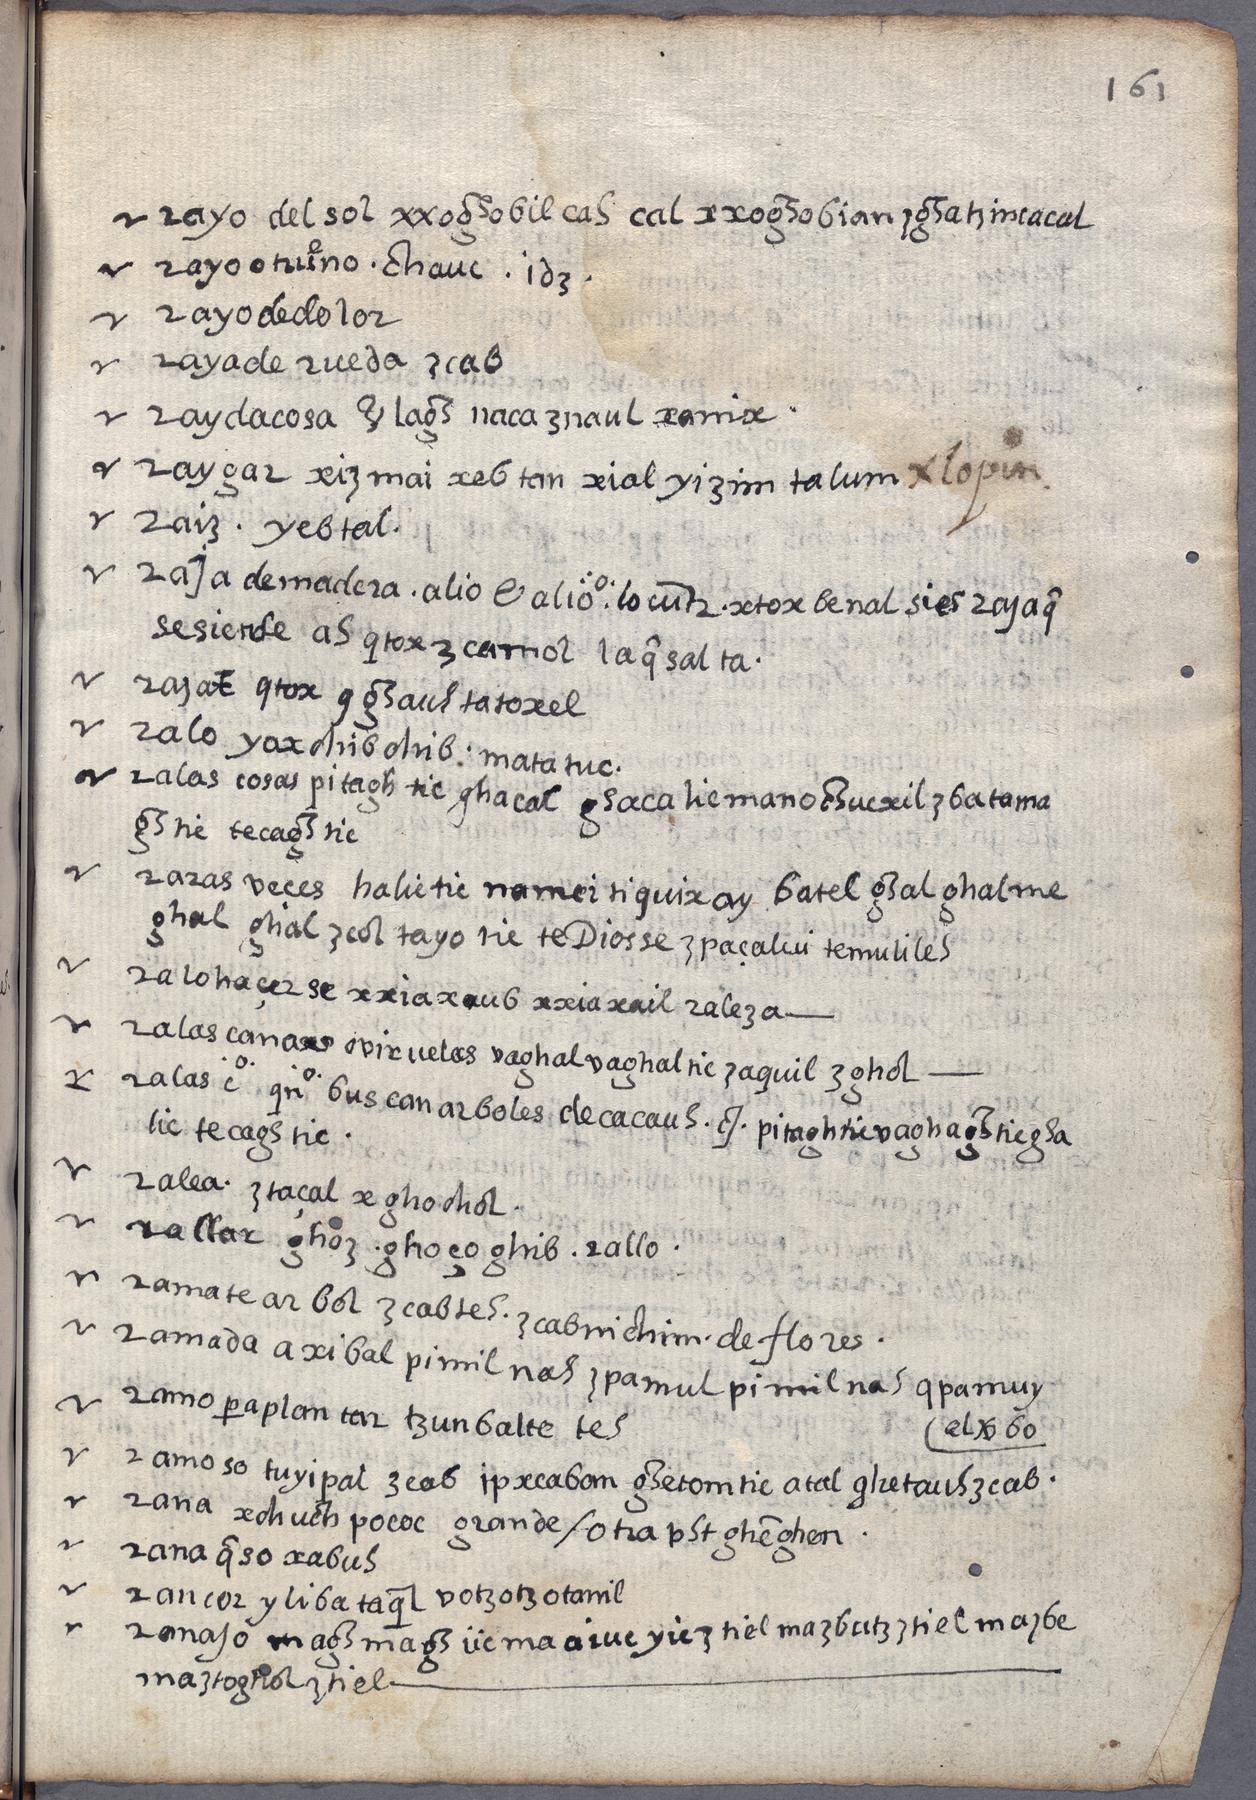 161
rayo del sol xxoghobil cah cal xxoghobian zghatzintacal
rayo o truẽno · chauc · idz ·
rayo de dolor
raya de rueda zcab
rayda cosa lagh naca znaul xamix ·
raygar xiz mai xeb tan xial yizim talum xlopin
raiz · yebtal ·
raja de madera · alio & alio · locutr · xtox benal si es raja q̃
se siende ah qtox zcamol la q̃ salta ·
rajar qtox q ghauh tatoxel
ralo yax chib chib · matatuc ·
ralas cosas pitagh tic ghacal ghacalic mano chucxil zbatama
gh tic tecagh tic
raras veces halictic namei tiquixay batel ghal ghalme
ghal ghial zcol tayo tic te Diosse zpaçalui temulileh
ralo haçerse xxiaxaub xxiaxail raleza —
ralas canas o viruelas vaghal vaghaltic zaquil zghol —
ralas c̃o q̃no buscan arboles de cacauh · pitaghtic vaghaghtic gha
lic tecagh tic ·
ralea · ztaçal x ghochol ·
rallar ghoz · ghoço ghib · rallo ·
rama te arbol zcabteh · zcabnichim · de flores ·
ramada axibal pimil nah zpamul pimil nah qpamuy
(el xbo
ramo p̱a plantar tzunbalte teh
ramoso tuyipal zcab ipxcaban ghetomtic atal ghetauh zcab ·
rana xchuch pococ grande / otra pht ghẽghen ·
rana q̃so xabuh
rancor yliba taq̃l votzotzotanil
ranajo magh magh iic ma aiuc yicz tiel mazbutz ztiel mazbe
maztoghol ztiel ·